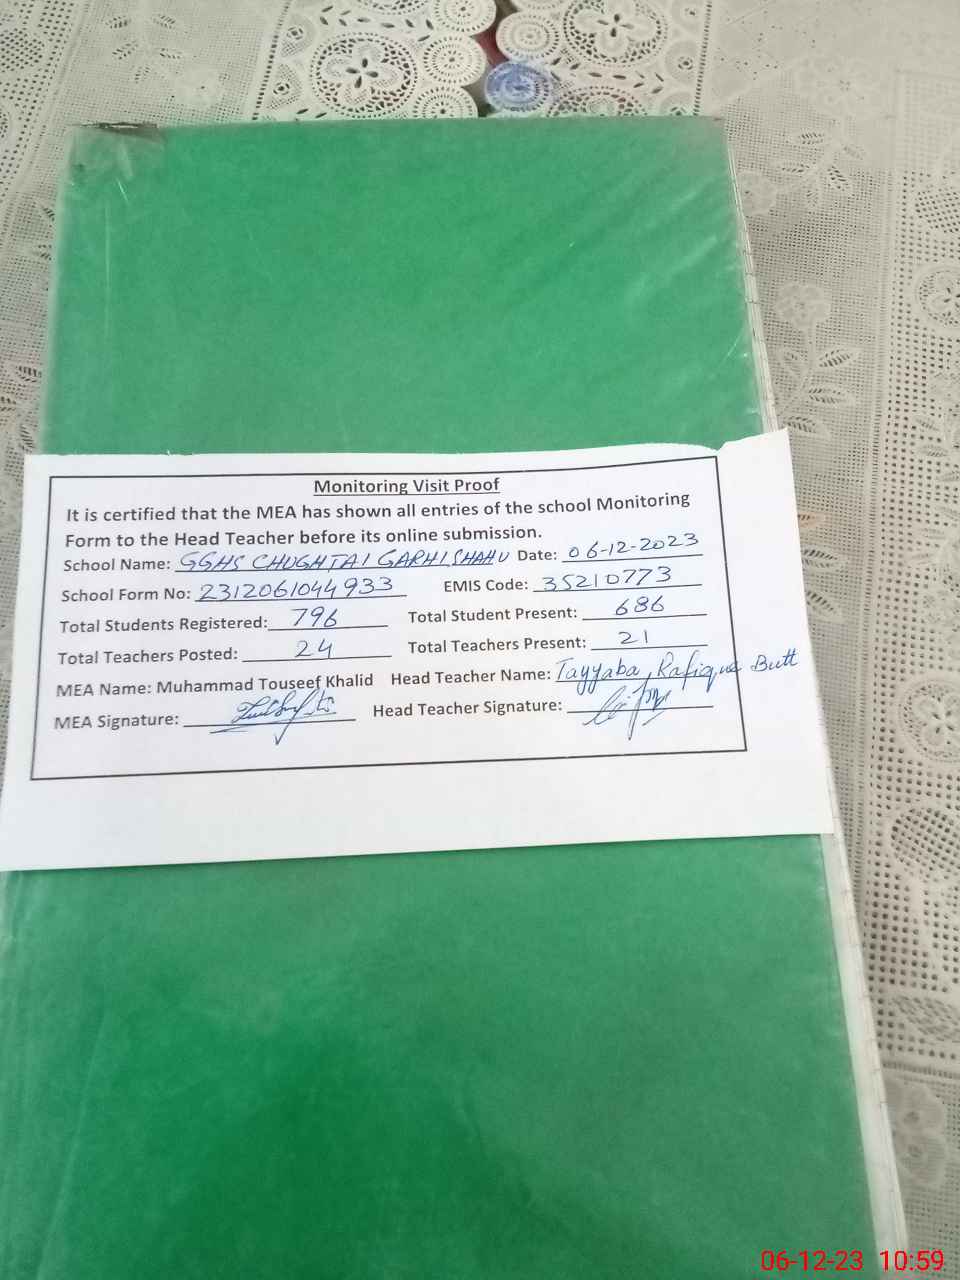 Monitoring Visit Proof
It is certified that the MEA has shown all entries of the school Monitoring
Form to the Head Teacher before its online submission.
School Name: GGHS CHUGHTAI GARHI SHAHU Date: 06-12-2023
School Form No: 2312061044933 EMIS Code: 35210773
Total Students Registered: 796 Total Student Present: 686
Total Teachers Posted: 24 Total Teachers Present: 21
MEA Name: Muhammad Touseef Khalid Head Teacher Name: Tayyaba Rafique Butt
MEA Signature: Head Teacher Signature:
06-12-23 10:59